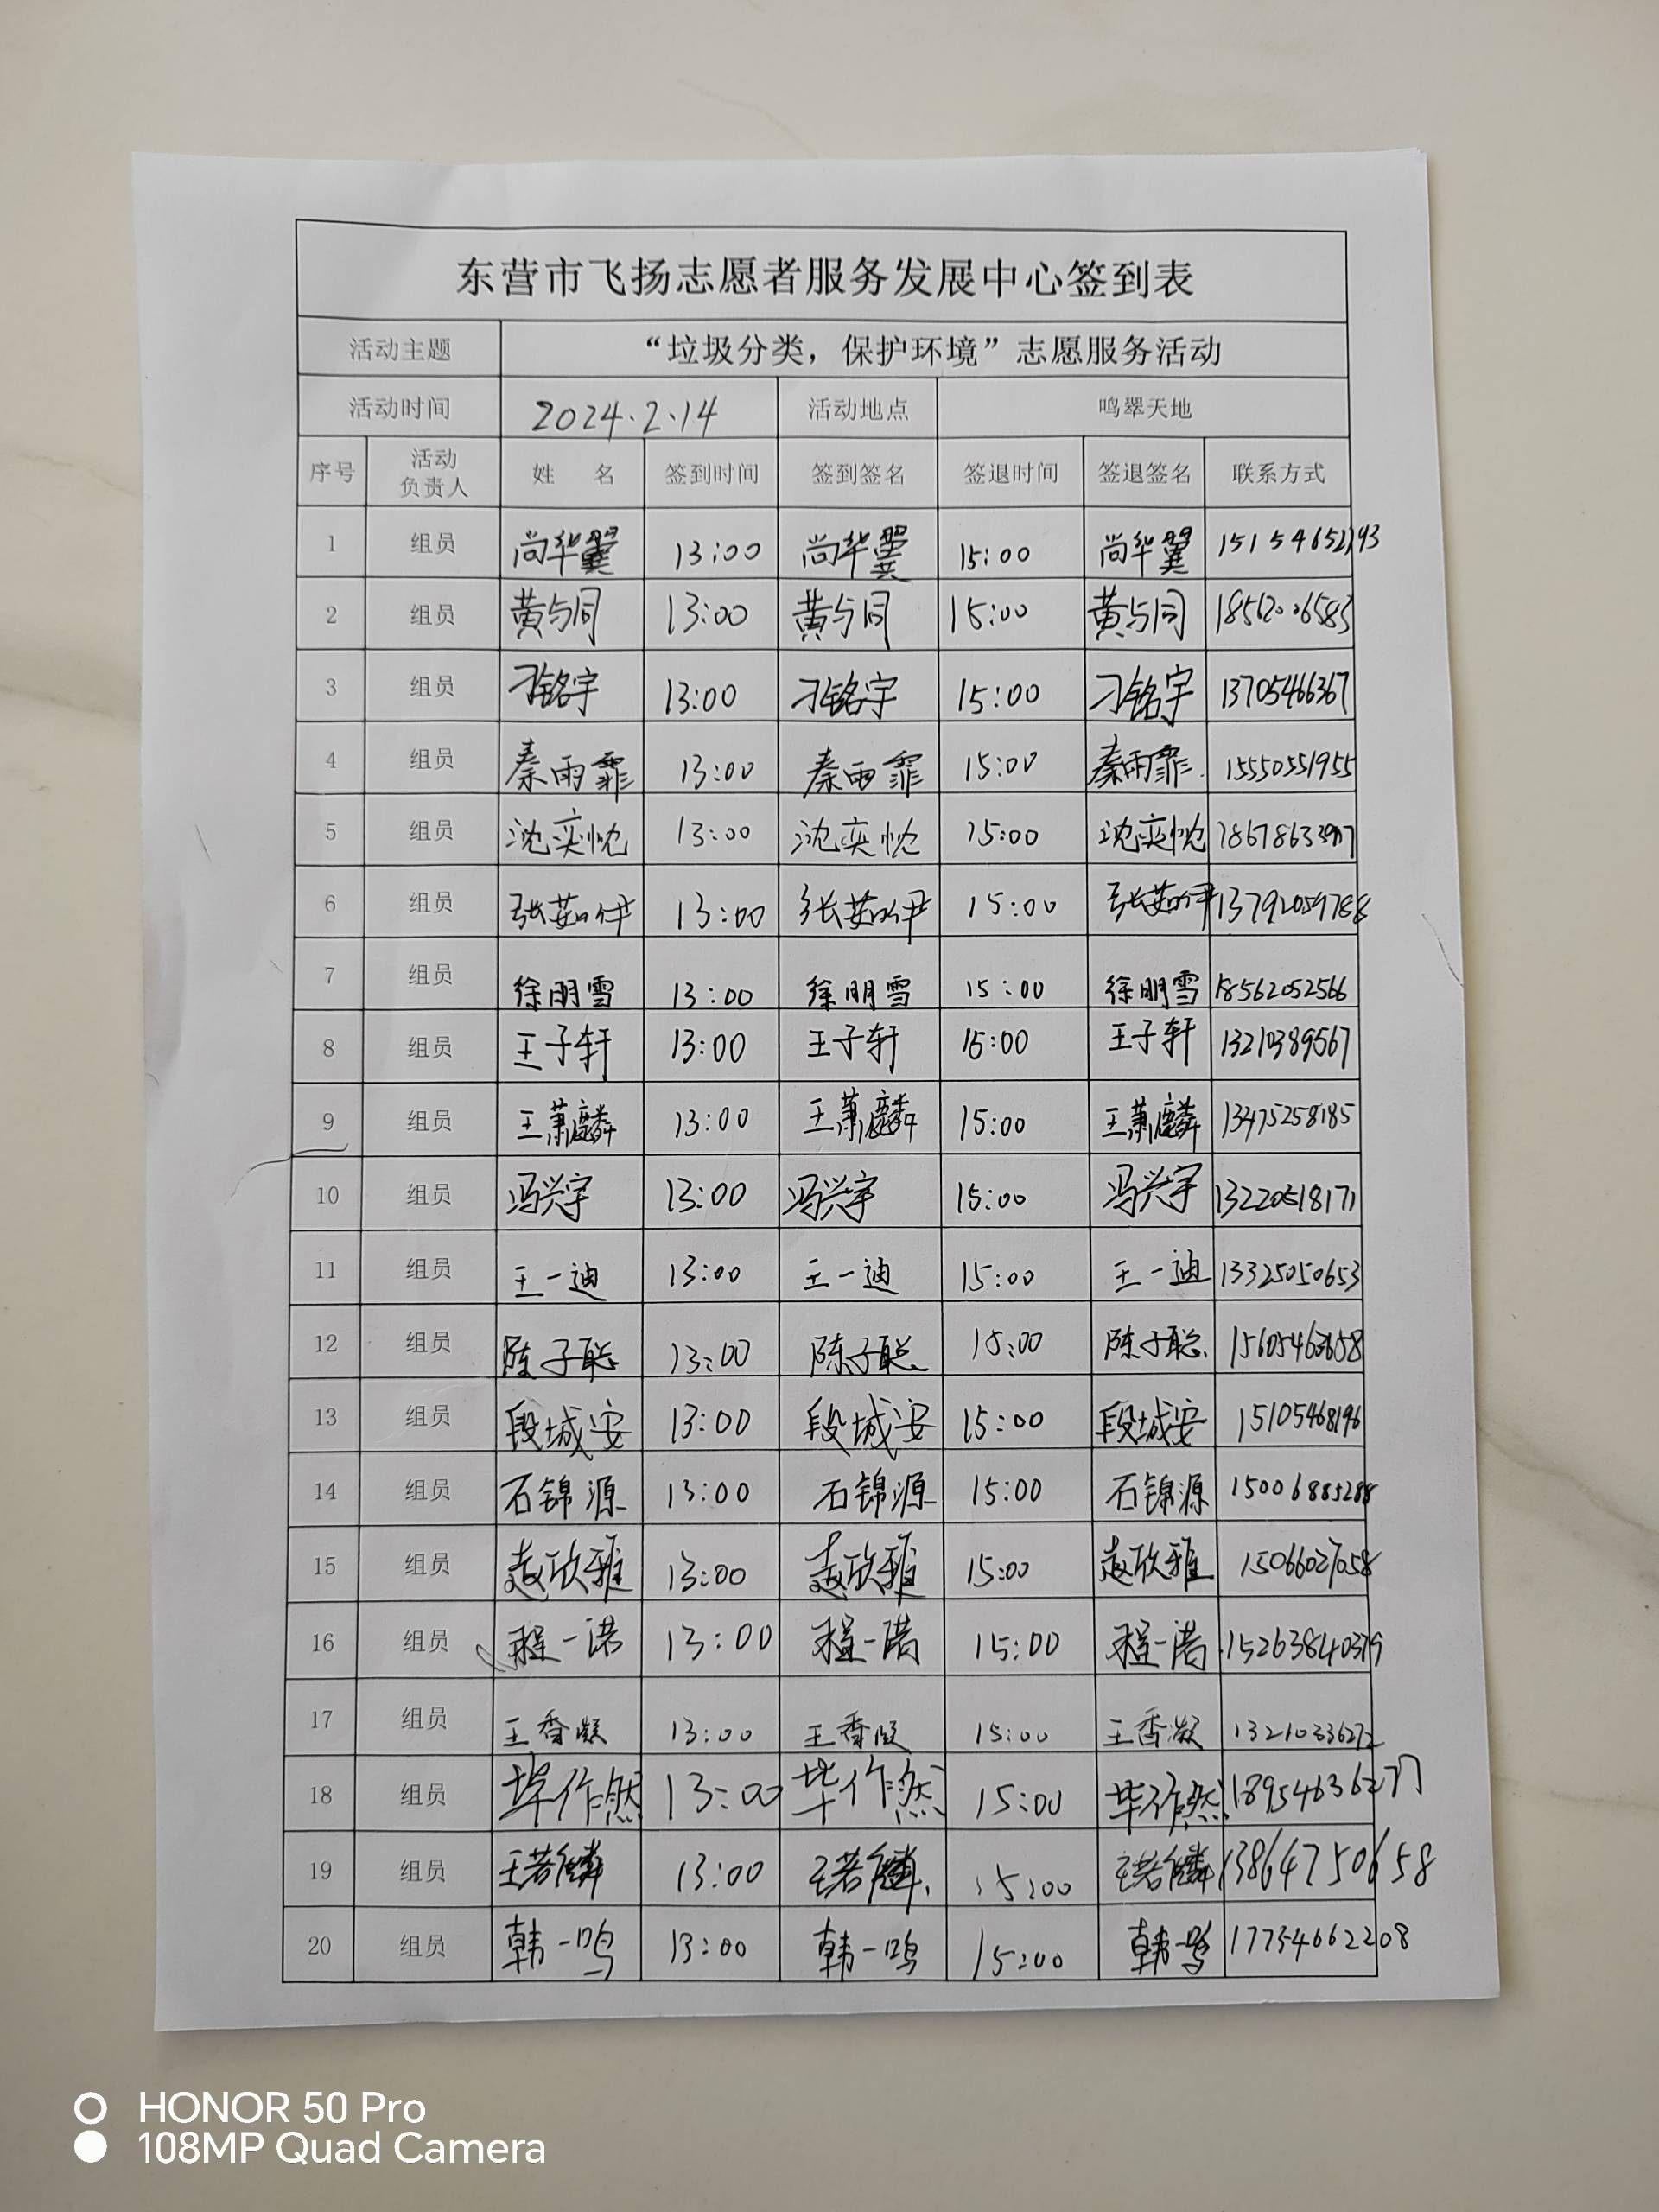 东营市飞扬志愿者服务发展中心签到表
活动主题 “垃圾分类，保护环境”志愿服务活动
活动时间 2024.2.14 活动地点 鸣翠天地
序号 活动负责人 姓 名 签到时间 签到签名 签退时间 签退签名 联系方式
1 组员 尚华翼 13:00 尚华翼 15:00 尚华翼
2 组员 黄与同 13:00 黄与同 15:00 黄与同
3 组员 刁铭宇 13:00 刁铭宇 15:00 刁铭宇 13705466367
4 组员 秦雨霏 13:00 秦雨霏 15:00 秦雨霏 15550551955
5 组员 沈奕忱 13:00 沈奕忱 15:00 沈奕忱
6 组员 张茹伊 13:00 张茹伊 15:00 张茹伊
7 组员 徐明雪 13:00 徐明雪 15:00 徐明雪 18562052566
8 组员 王子轩 13:00 王子轩 15:00 王子轩 13210389567
9 组员 王萧麟 13:00 王萧麟 15:00 王萧麟 13475258185
10 组员 冯兴宇 13:00 冯兴宇 15:00 冯兴宇 13220518171
11 组员 王一迪 13:00 王一迪 15:00 王一迪 13325050653
12 组员 陈子聪 13:00 陈子聪 15:00 陈子聪
13 组员 段城安 13:00 段城安 15:00 段城安 15105468196
14 组员 石锦源 13:00 石锦源 15:00 石锦源
15 组员 赵欣雅 13:00 赵欣雅 15:00 赵欣雅 15066027058
16 组员 程一诺 13:00 程一诺 15:00 程一诺
17 组员 王香凝 13:00 王香凝 15:00 王香凝
18 组员 毕作然 13:00 毕作然 15:00 毕作然 18954636277
19 组员 王若麟 13:00 王若麟 15:00 王若麟 13864750658
20 组员 韩一鸣 13:00 韩一鸣 15:00 韩一鸣 17754662208
HONOR 50 Pro
108MP Quad Camera